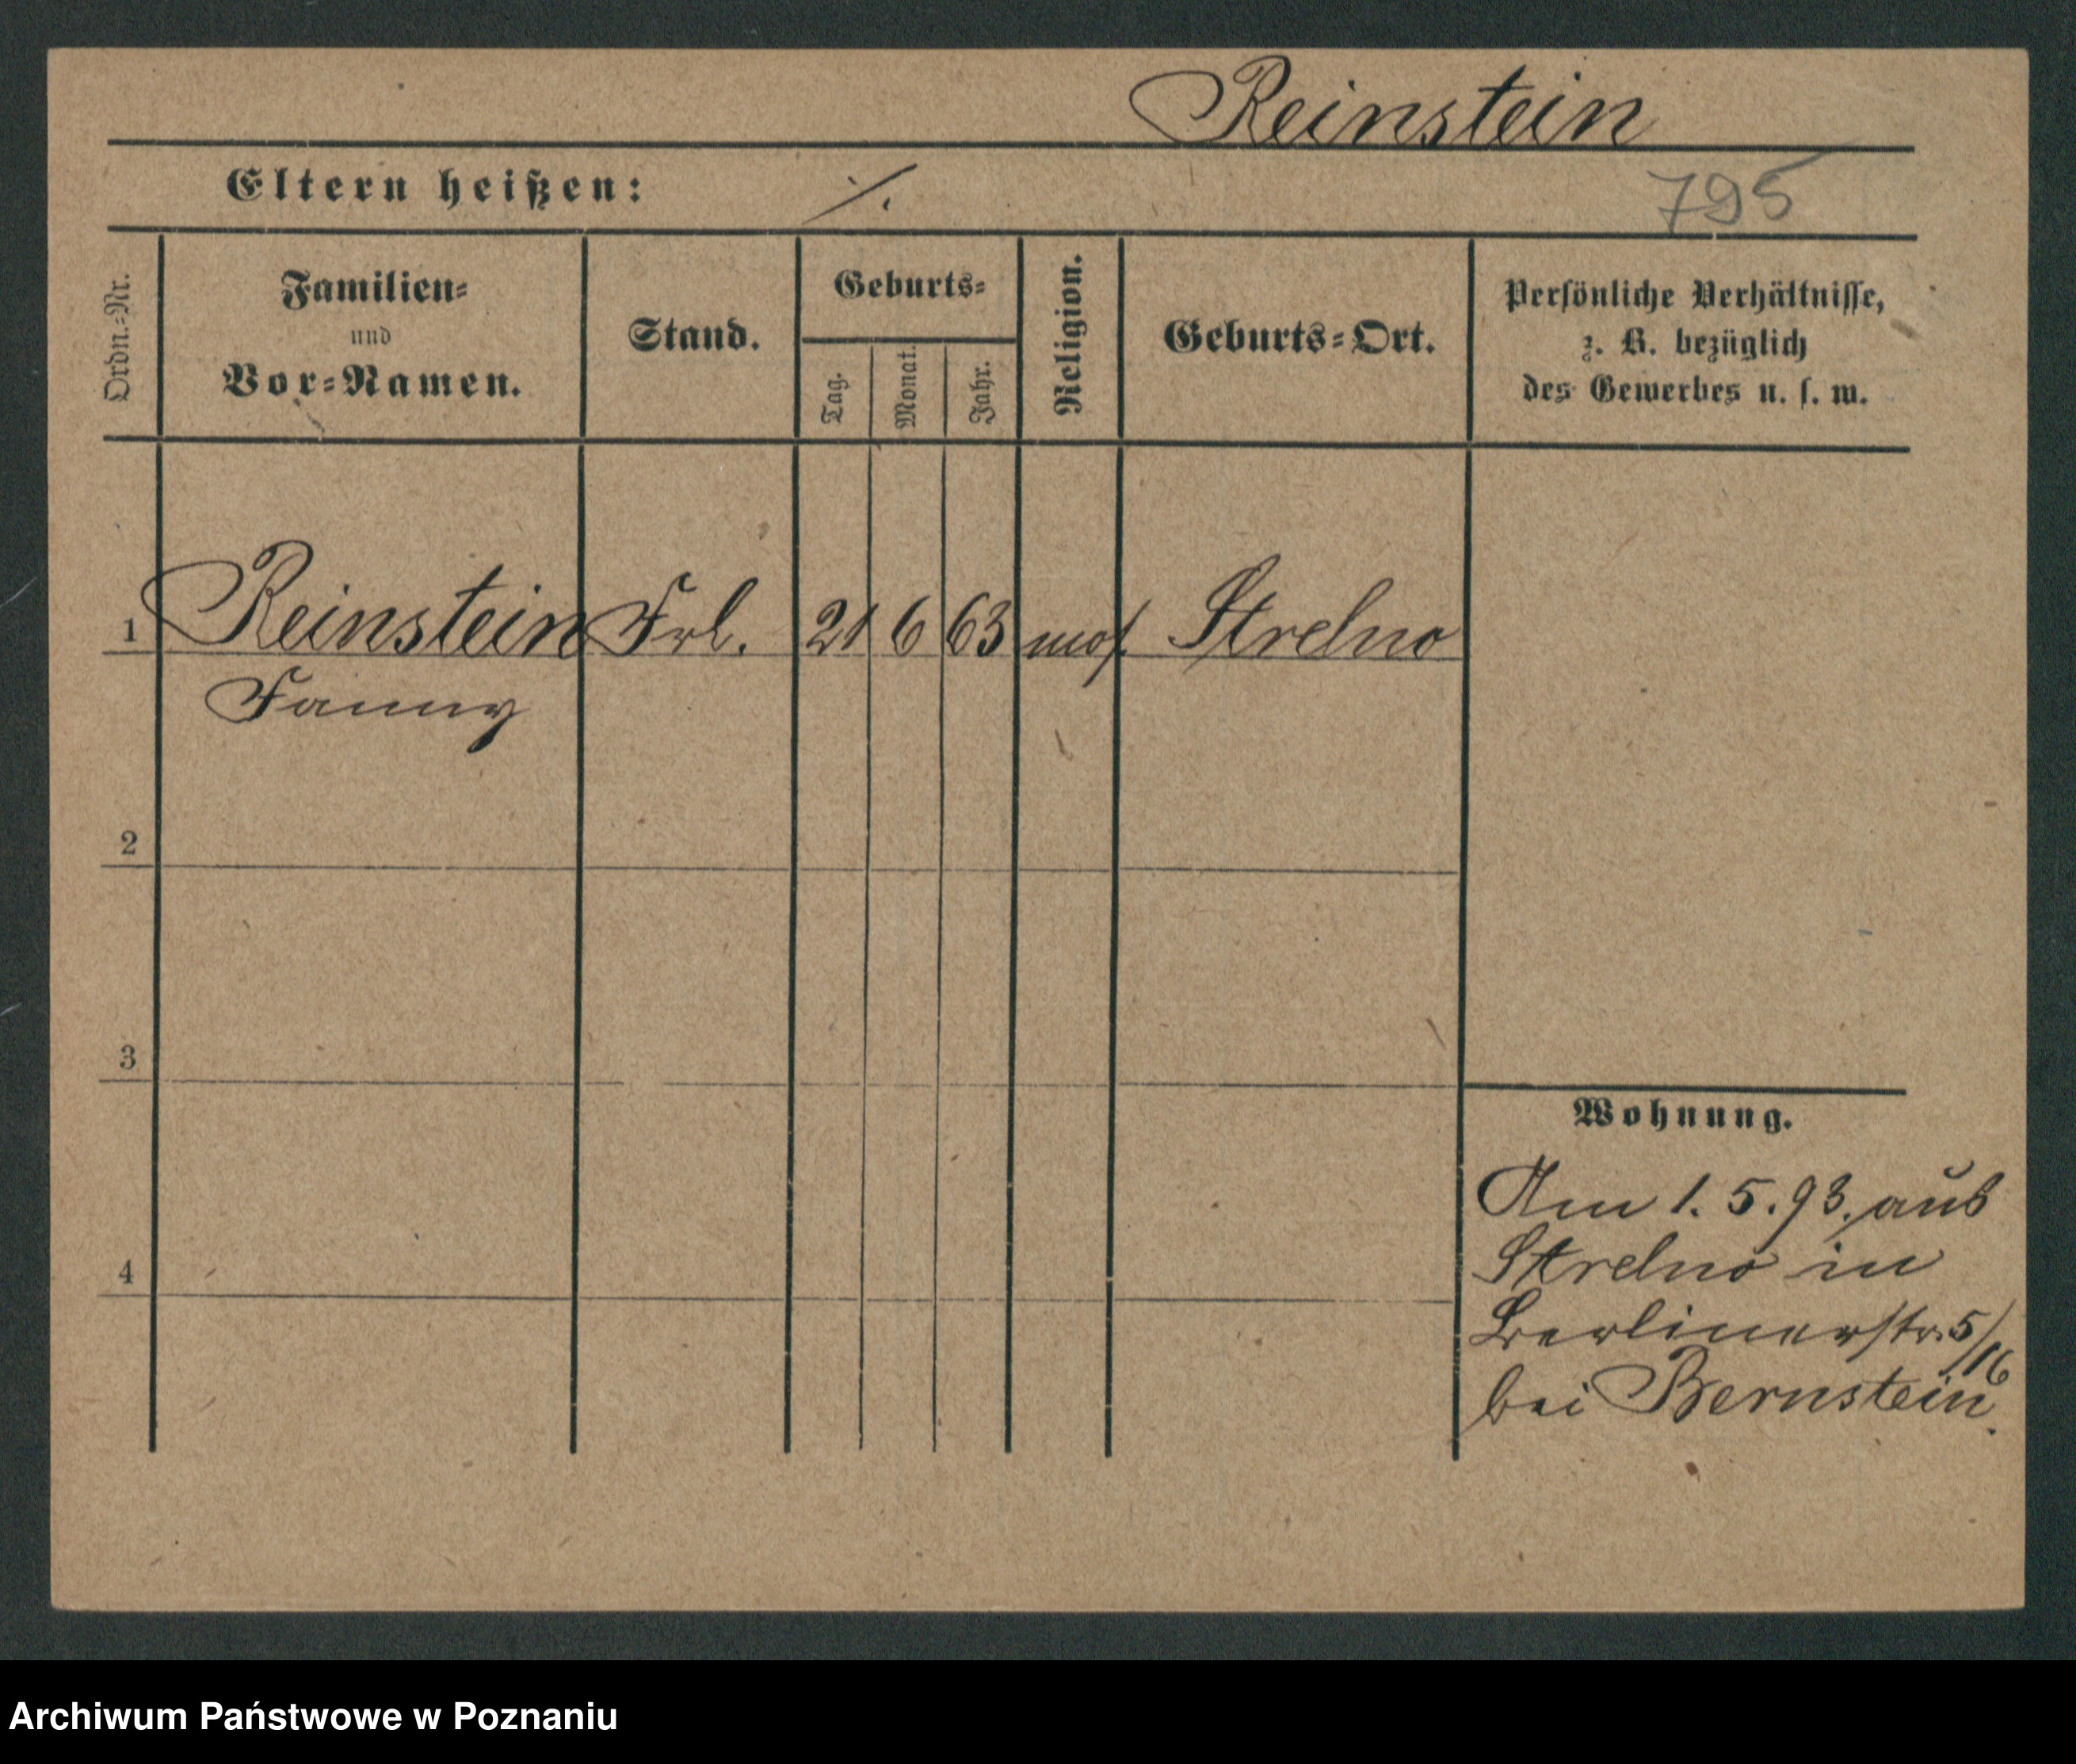 Reinstein
Eltern heißen: ./.
795
Ordn.=Nr.
Familien=
und
Vor=Namen.
Stand.
Geburts=
Tag.
Monat.
Jahr.
Religion.
Geburts=Ort.
Persönliche Verhältnisse,
z. B. bezüglich
des Gewerbes u. s. w.
1 Reinstein Frl. 21 6 63 mos. Strelno
Fanny
2
3
4
Wohnung.
Am 1. 5. 93. aus
Strelno in
Berlinerstr. 5/16
bei Bernstein.
Archiwum Państwowe w Poznaniu